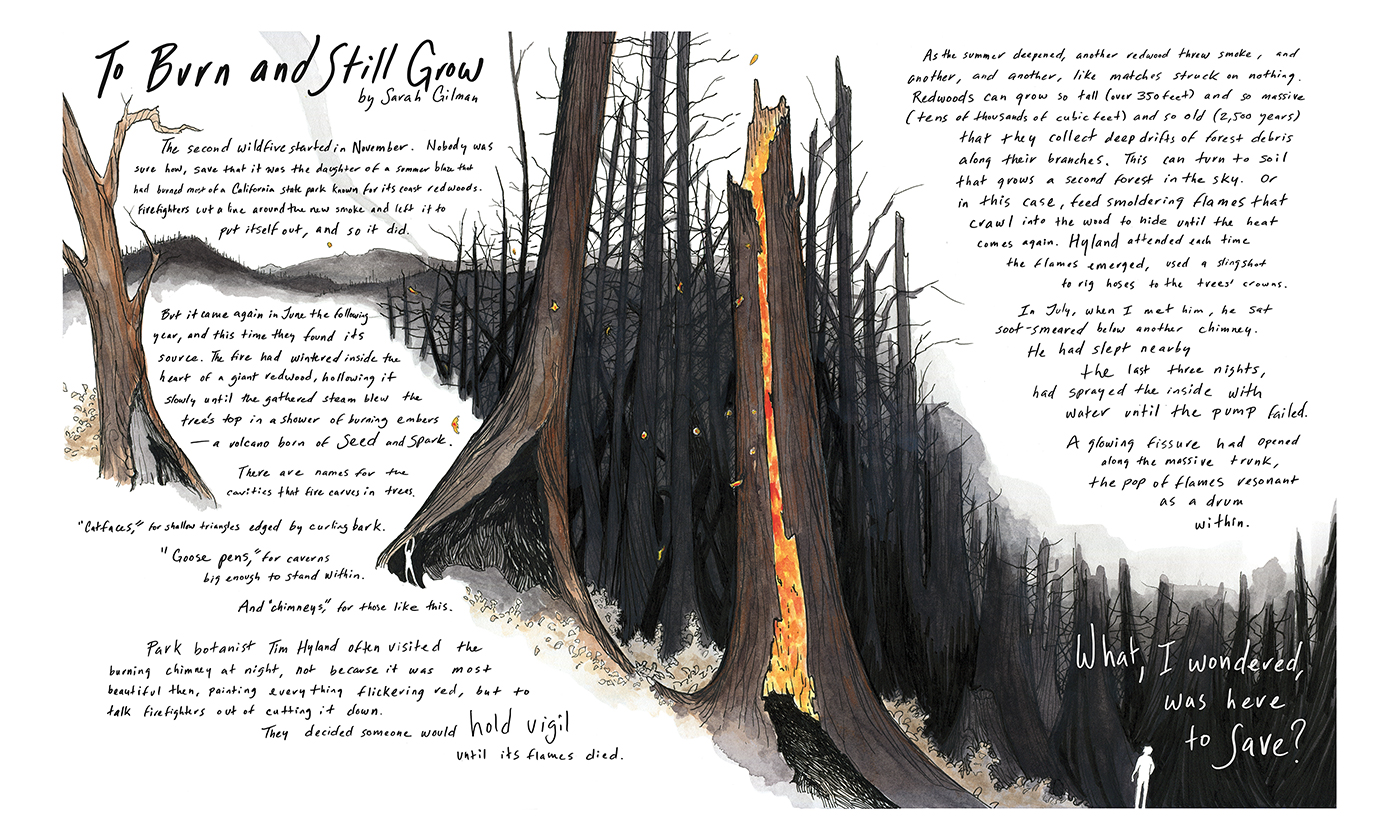 To Burn and Still Grow
by Sarah Gilman
The second wildfire started in November. Nobody was
sure how, save that it was the daughter of a summer blaze that
had burned most of a California state park known for its coast redwoods.
Firefighters cut a line around the new smoke and left it to
put itself out, and so it did.
But it came again in June the following
year, and this time they found its
source. The fire had wintered inside the
heart of a giant redwood, hollowing it
slowly until the gathered steam blew the
tree's top in a shower of burning embers
— a volcano born of seed and spark.
There are names for the
cavities that fire carves in trees.
"Catfaces," for shallow triangles edged by curling bark.
"Goose pens," for caverns
big enough to stand within.
And "chimneys," for those like this.
Park botanist Tim Hyland often visited the
burning chimney at night, not because it was most
beautiful then, painting everything flickering red, but to
talk firefighters out of cutting it down.
They decided someone would hold vigil
until its flames died.
As the summer deepened, another redwood threw smoke, and
another, and another, like matches struck on nothing.
Redwoods can grow so tall (over 350 feet) and so massive
(tens of thousands of cubic feet) and so old (2,500 years)
that they collect deep drifts of forest debris
along their branches. This can turn to soil
that grows a second forest in the sky. Or
in this case, feed smoldering flames that
crawl into the wood to hide until the heat
comes again. Hyland attended each time
the flames emerged, used a slingshot
to rig hoses to the trees' crowns.
In July, when I met him, he sat
soot-smeared below another chimney.
He had slept nearby
the last three nights,
had sprayed the inside with
water until the pump failed.
A glowing fissure had opened
along the massive trunk,
the pop of flames resonant
as a drum
within.
What, I wondered,
was here
to save?